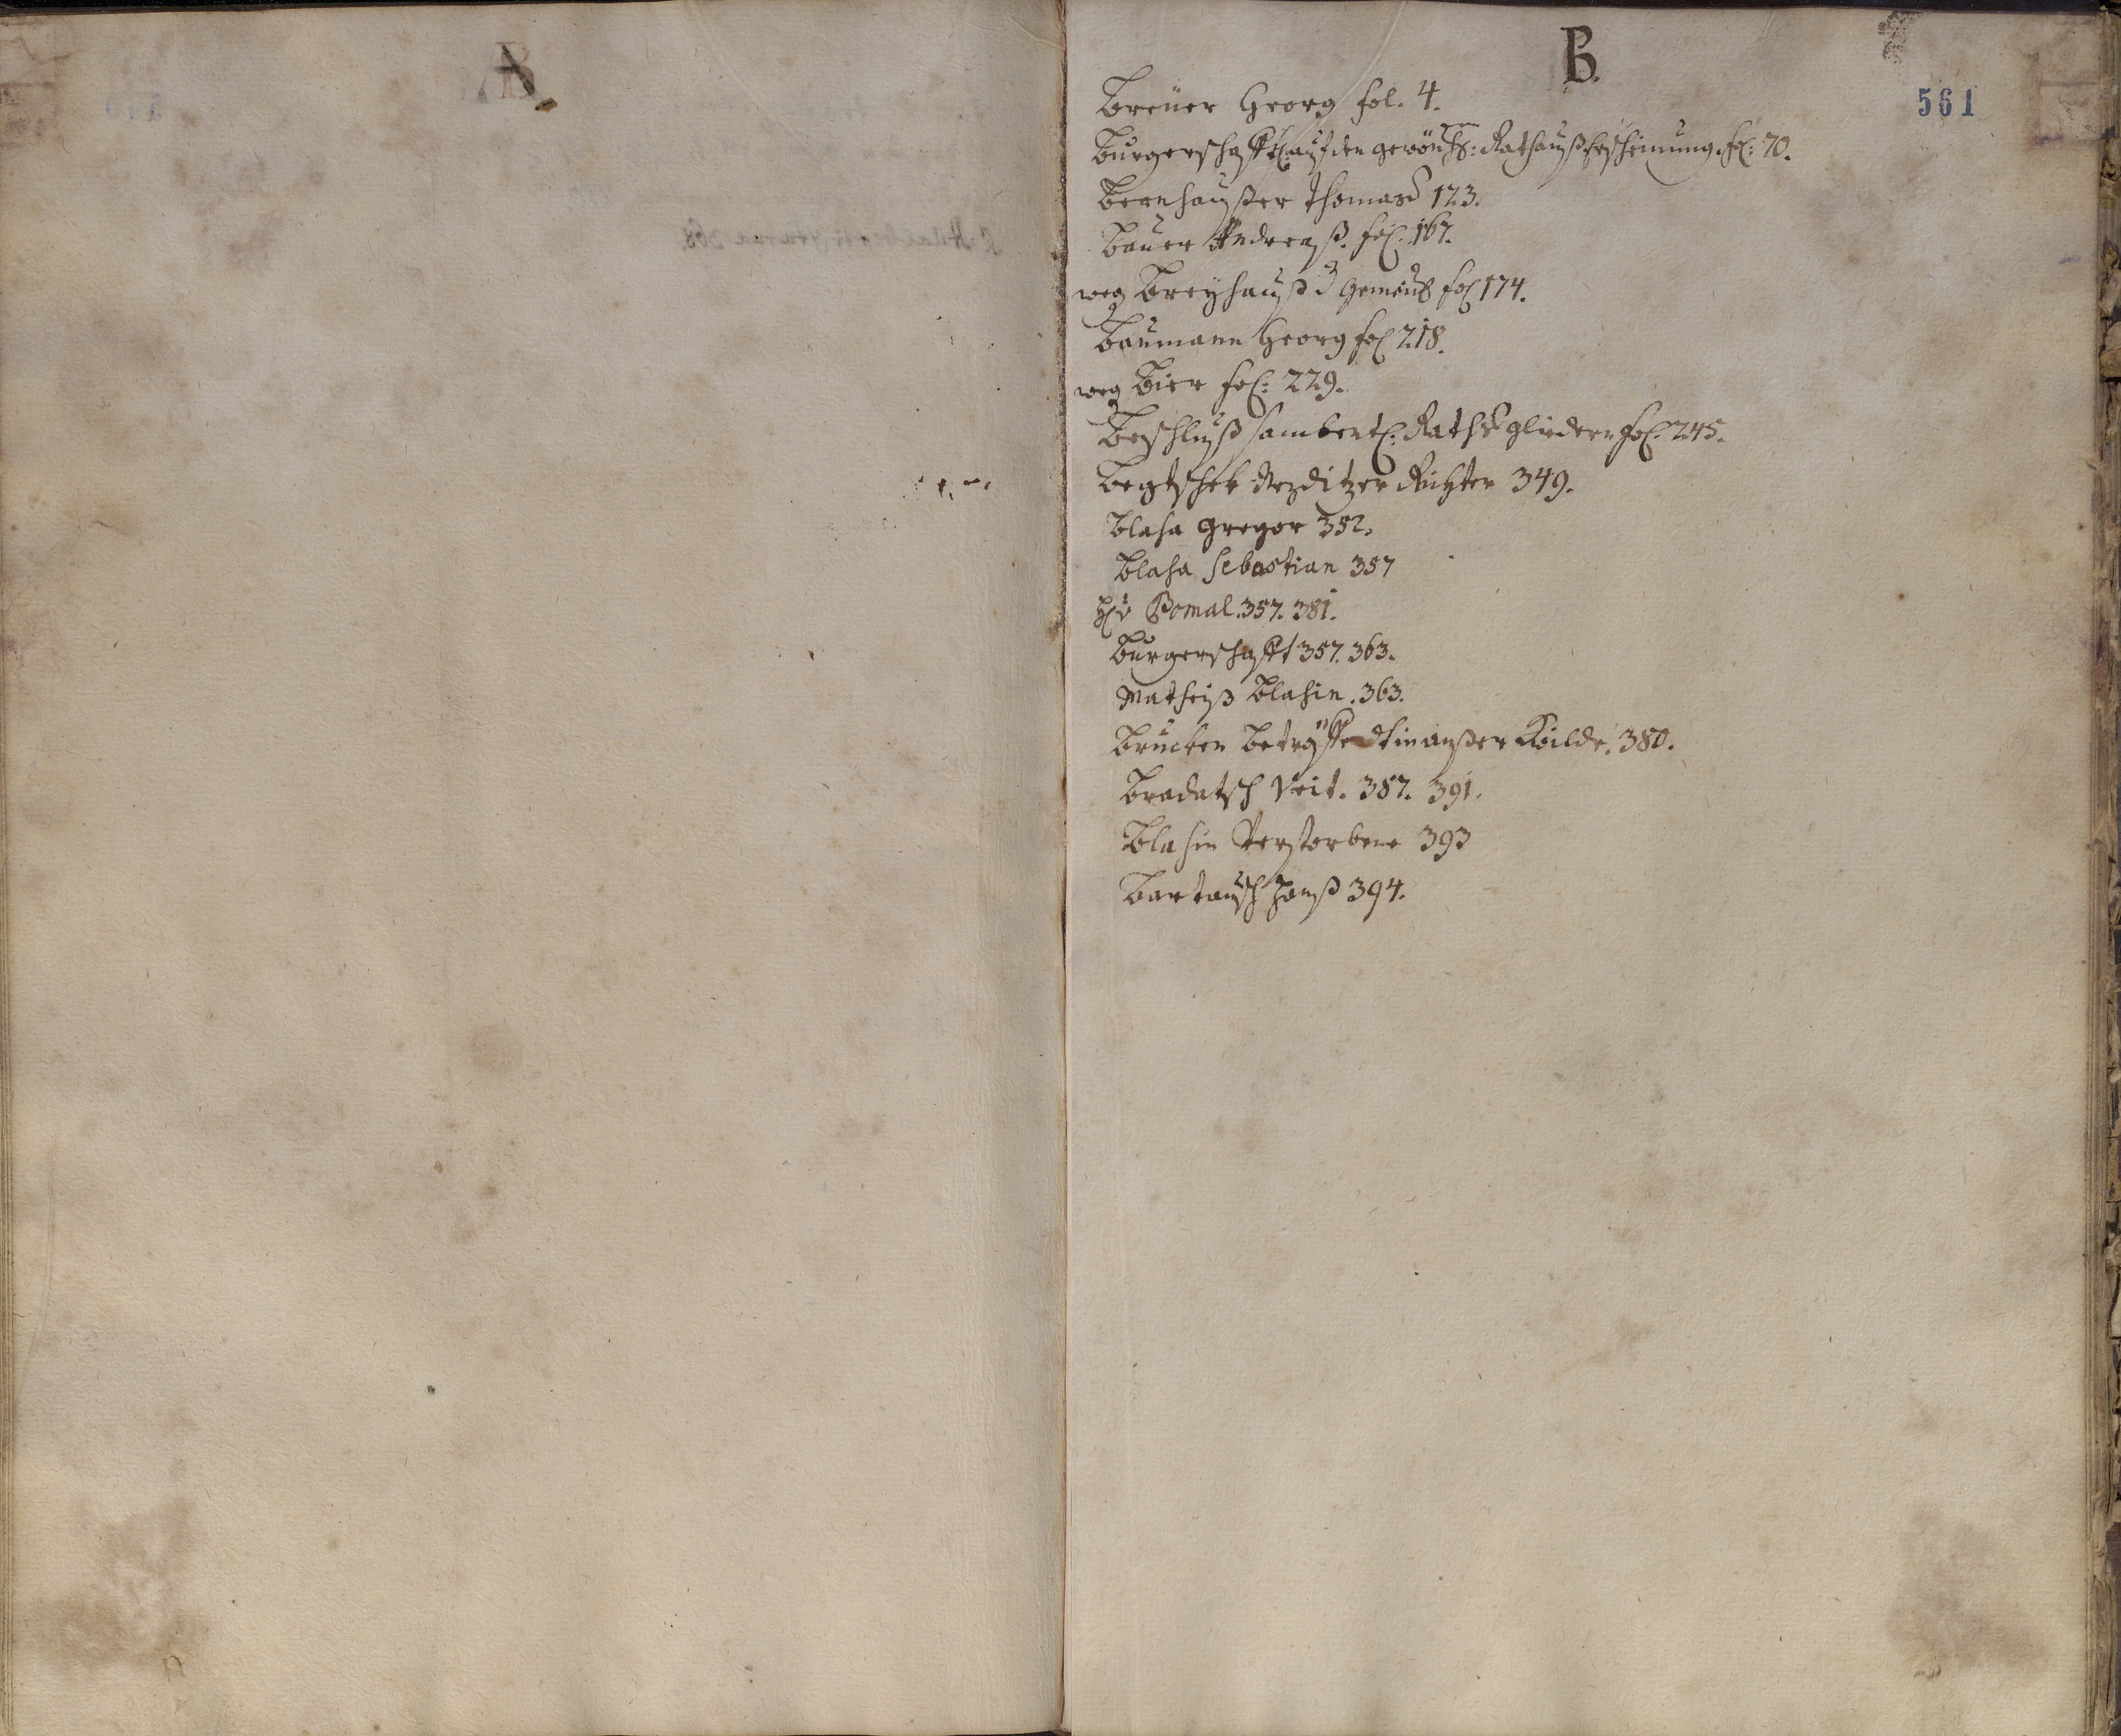 B.
561
Breüer Georg fol. 4.
Burgerschafft auf den gewön: Rathauß Erscheinung. fol: 70.
Bernhaußer Thomas 123.
Bauer Andreaß. fol: 167.
weg Breyhauß d Gemein fol 174.
Baumann Georg fol 218.
weg Bier fol: 229.
Beschluß sambentl: Raths gliedern fol: 245.
Nezditzer Richter 349.
Blaha Gregor 352.
Blaha Sebastian 357
Bomal. 357. 381.
Burgerschafft 357. 363.
Matheiß Blahin. 363.
Brucken betreffendt 380.
Bradatsch Veit. 387. 391.
Blahin Verstorbene 393
Bartausch Hanß 394.